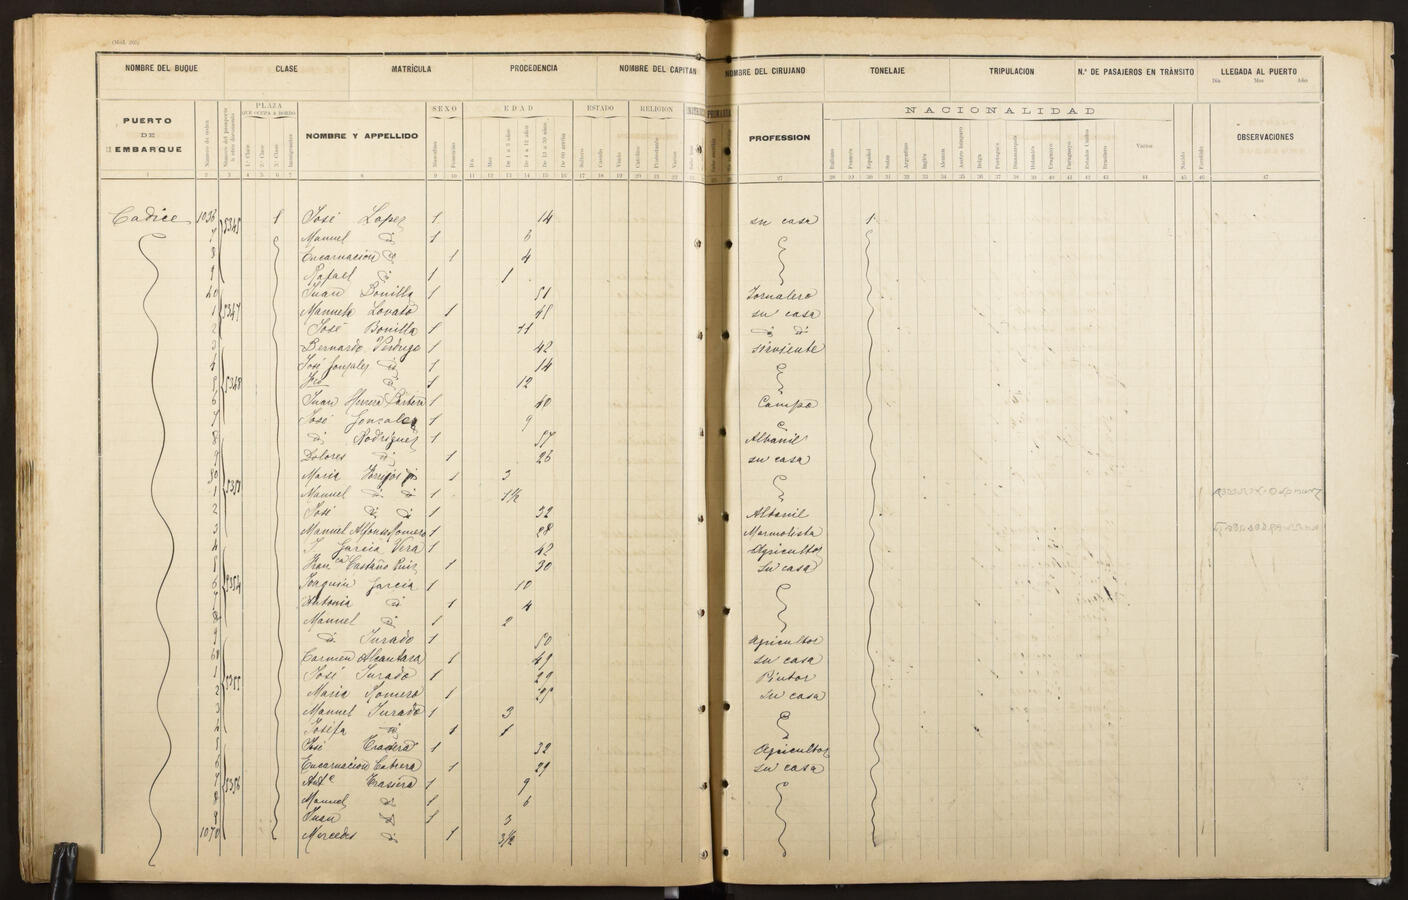 (Mod. 205)
NOMBRE DEL BUQUE CLASE MATRÍCULA PROCEDENCIA NOMBRE DEL CAPITAN NOMBRE DEL CIRUJANO TONELAJE TRIPULACION N.º DE PASAJEROS EN TRÁNSITO LLEGADA AL PUERTO
Día Mes Año
PUERTO DE EMBARQUE
Número de orden
PLAZA QUE OCUPA A BORDO
1.ª Clase 2.ª Clase 3.ª Clase Inmigrantes
NOMBRE Y APELLIDO
SEXO
Masculino Femenino
EDAD
Día Mes De 1 a 3 años De 4 a 12 años De 13 a 59 años De 60 arriba
ESTADO
Soltero Casado Viudo
RELIGION
Católica Protestante Varios
PROFESSION
NACIONALIDAD
Italiano Francés Español Suizo Argentino Inglés Alemán Austro húngaro Belga Portugués Dinamarqués Holandés Uruguayo Paraguayo Estados Unidos Brasilero Varios
OBSERVACIONES
Cadice 1036 5345 1 José Lopez 1 14 su casa 1
7 Manuel id 1 6
8 Encarnación id 1 4
9 Rafael id 1 1
40 Juan Bonilla 1 51 Jornalero
1 5347 Manuela Lovato 1 48 su casa
2 José Bonilla 1 11 id id
3 Bernardo Verdugo 1 42 sirviente
4 José Gonzalez id 1 14
5 5348 id 1 12
6 Juan Herrera 1 40 Campo
7 José Gonzalez 1 9
8 id Rodriguez 1 57 Albanil
9 Dolores id 1 26 su casa
50 Maria 1 3
1 5351 Manuel id id 1 1½
2 José id id 1 32 Albanil
3 Manuel Alfonso Romero 1 28 Marmolista
4 Garcia Vera 1 42 Agricultor
5 Franca Castaño Ruiz 1 30 su casa
6 5354 Joaquin Garcia 1 10
7 Antonia id 1 4
8 Manuel id 1 2
9 id Jurado 1 50 Agricultor
60 Carmen Alcantara 1 49 su casa
1 5355 José Jurado 1 29 Pintor
2 Maria Romero 1 25 su casa
3 Manuel Jurado 1 3
4 Josefa id 1 1
5 José Trasiera 1 32 Agricultor
6 Encarnación Cabrera 1 29 su casa
7 5356 Antº Trasiera 1 9
8 Manuel id 1 6
9 Juan id 1 3
1070 Mercedes id 1 3½